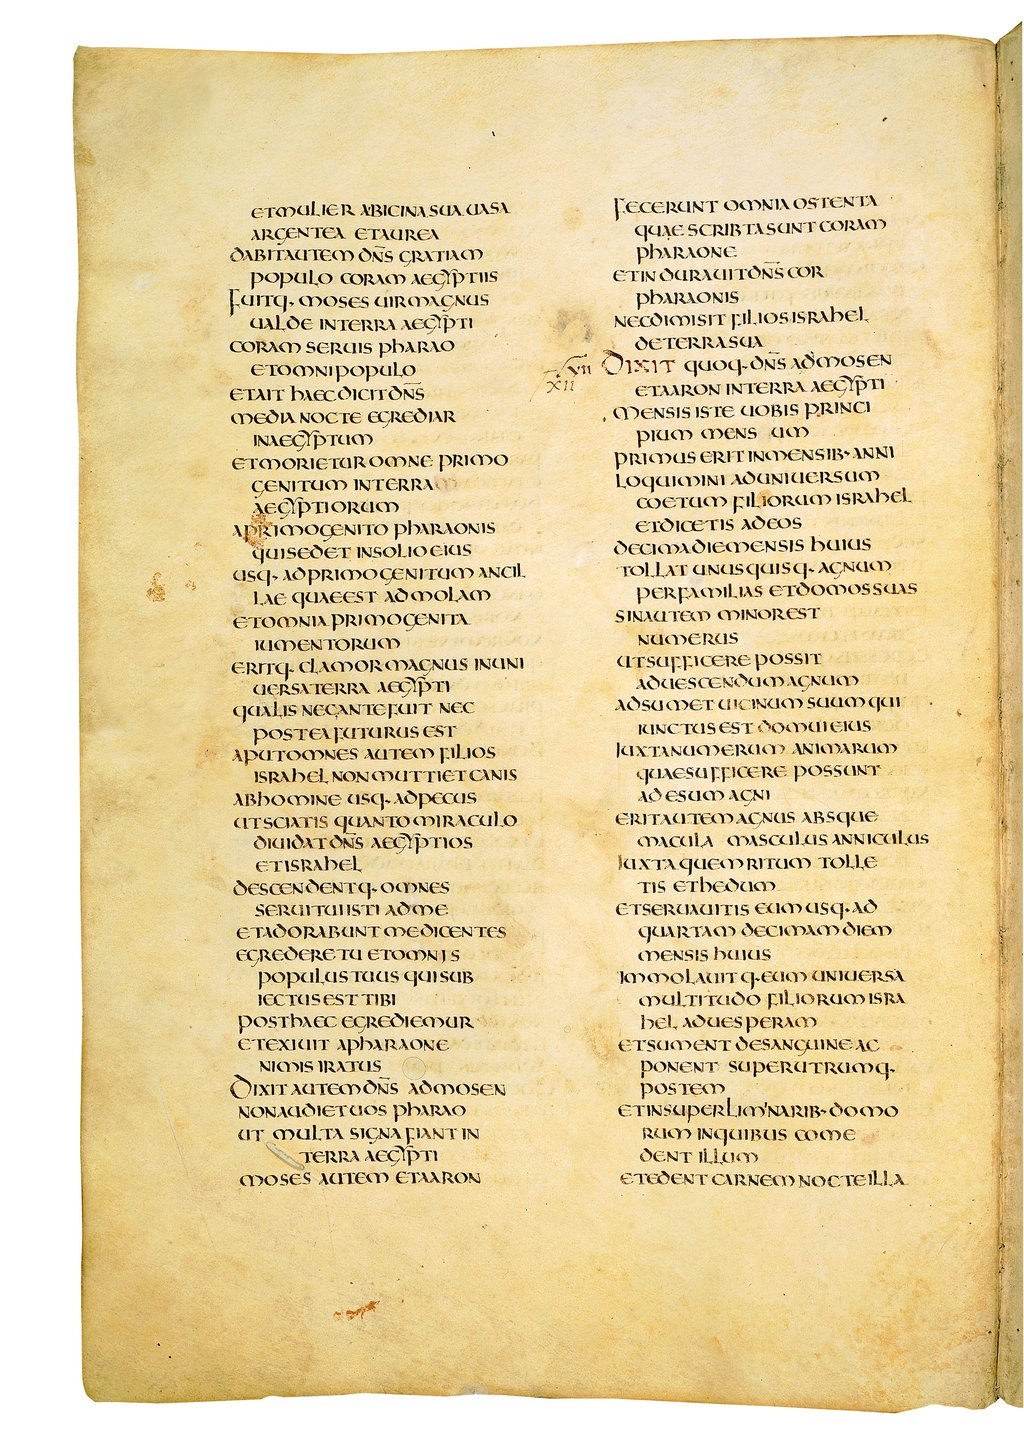 ET MULIER A UICINA SUA UASA
ARGENTEA ET AUREA
DABIT AUTEM DN̄S GRATIAM
POPULO CORAM AEGYPTIIS
FUITQ· MOSES UIR MAGNUS
UALDE IN TERRA AEGYPTI
CORAM SERUIS PHARAO
ET OMNI POPULO
ET AIT HAEC DICIT DN̄S
MEDIA NOCTE EGREDIAR
IN AEGYPTUM
ET MORIETUR OMNE PRIMO
GENITUM IN TERRA
AEGYPTIORUM
A PRIMOGENITO PHARAONIS
QUI SEDET IN SOLIO EIUS
USQ· AD PRIMOGENITUM ANCIL
LAE QUAE EST AD MOLAM
ET OMNIA PRIMOGENITA
IUMENTORUM
ERITQ· CLAMOR MAGNUS IN UNI
UERSA TERRA AEGYPTI
QUALIS NEC ANTE FUIT NEC
POSTEA FUTURUS EST
APUT OMNES AUTEM FILIOS
ISRAHEL NON MUTTIET CANIS
AB HOMINE USQ· AD PECUS
UT SCIATIS QUANTO MIRACULO
DIUIDAT DN̄S AEGYPTIOS
ET ISRAHEL
DESCENDENTQ· OMNES
SERUI TUI ISTI AD ME
ET ADORABUNT ME DICENTES
EGREDERE TU ET OMNIS
POPULUS TUUS QUI SUB
IECTUS EST TIBI
POST HAEC EGREDIEMUR
ET EXIUIT A PHARAONE
NIMIS IRATUS
DIXIT AUTEM DN̄S AD MOSEN
NON AUDIET UOS PHARAO
UT MULTA SIGNA FIANT IN
TERRA AEGYPTI
MOSES AUTEM ET AARON
FECERUNT OMNIA OSTENTA
QUAE SCRIBTA SUNT CORAM
PHARAONE
ET INDURAUIT DN̄S COR
PHARAONIS
NEC DIMISIT FILIOS ISRAHEL
DE TERRA SUA
DIXIT QUOQ· DN̄S AD MOSEN
XII
ET AARON IN TERRA AEGYPTI
MENSIS ISTE UOBIS PRINCI
PIUM MENSUM
PRIMUS ERIT IN MENSIB· ANNI
LOQUIMINI AD UNIUERSUM
COETUM FILIORUM ISRAHEL
ET DICETIS AD EOS
DECIMA DIE MENSIS HUIUS
TOLLAT UNUSQUISQ· AGNUM
PER FAMILIAS ET DOMOS SUAS
SIN AUTEM MINOR EST
NUMERUS
UT SUFFICERE POSSIT
AD UESCENDUM AGNUM
ADSUMET UICINUM SUUM QUI
IUNCTUS EST DOMUI EIUS
IUXTA NUMERUM ANIMARUM
QUAE SUFFICERE POSSUNT
AD ESUM AGNI
ERIT AUTEM AGNUS ABSQUE
MACULA MASCULUS ANNICULUS
IUXTA QUEM RITUM TOLLE
TIS ET HEDUM
ET SERUAUITIS EUM USQ· AD
QUARTAM DECIMAM DIEM
MENSIS HUIUS
IMMOLAUITQ· EUM UNIUERSA
MULTITUDO FILIORUM ISRA
HEL AD UESPERAM
ET SUMENT DE SANGUINE AC
PONENT SUPER UTRUMQ·
POSTEM
ET IN SUPERLIMINARIB· DOMO
RUM IN QUIBUS COME
DENT ILLUM
ET EDENT CARNEM NOCTE ILLA